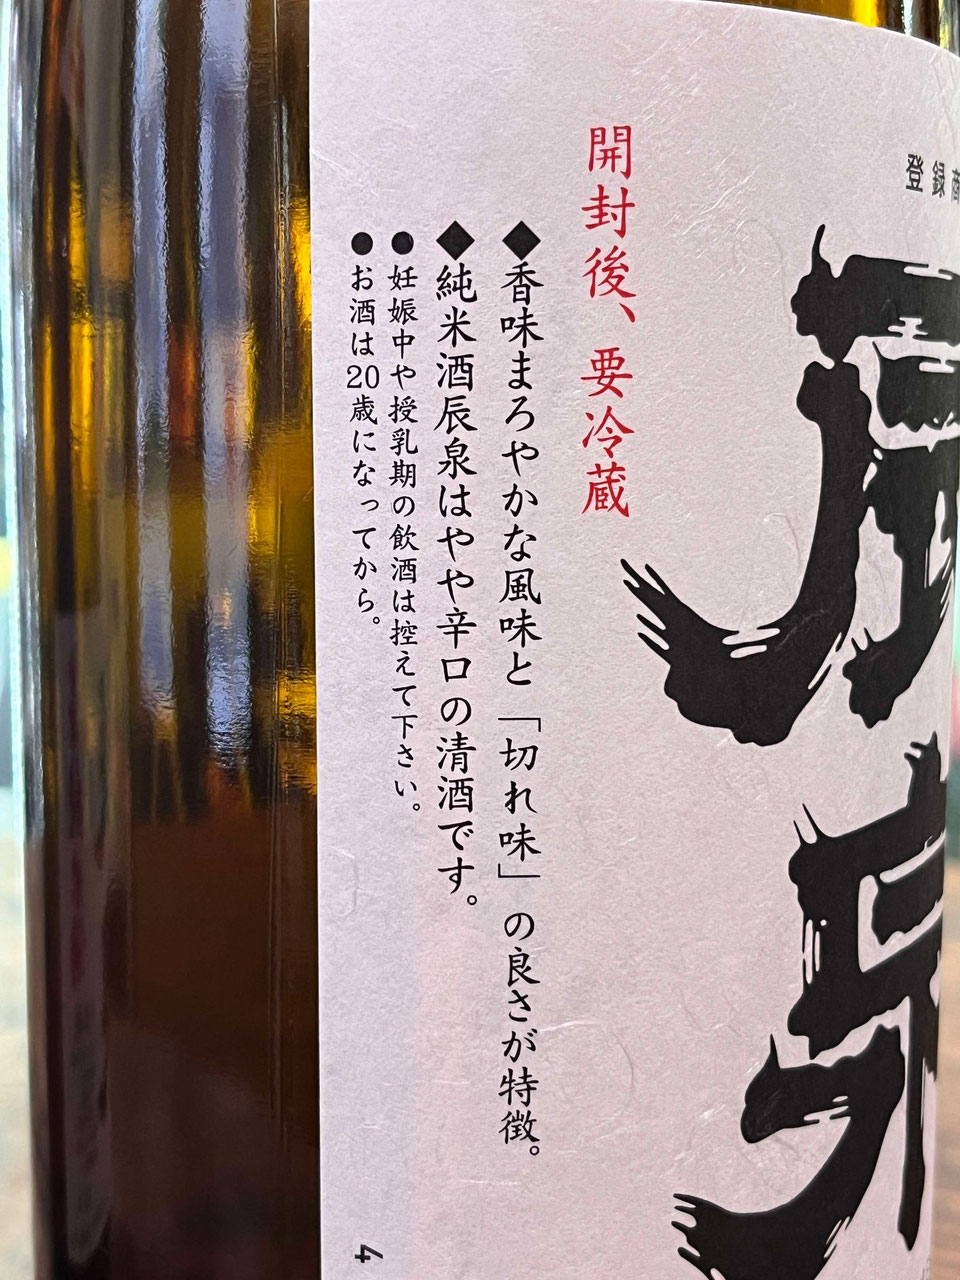 登録商
辰泉
開封後、要冷蔵
◆香味まろやかな風味と「切れ味」の良さが特徴。
◆純米酒辰泉はやや辛口の清酒です。
●妊娠中や授乳期の飲酒は控えて下さい。
●お酒は20歳になってから。
4